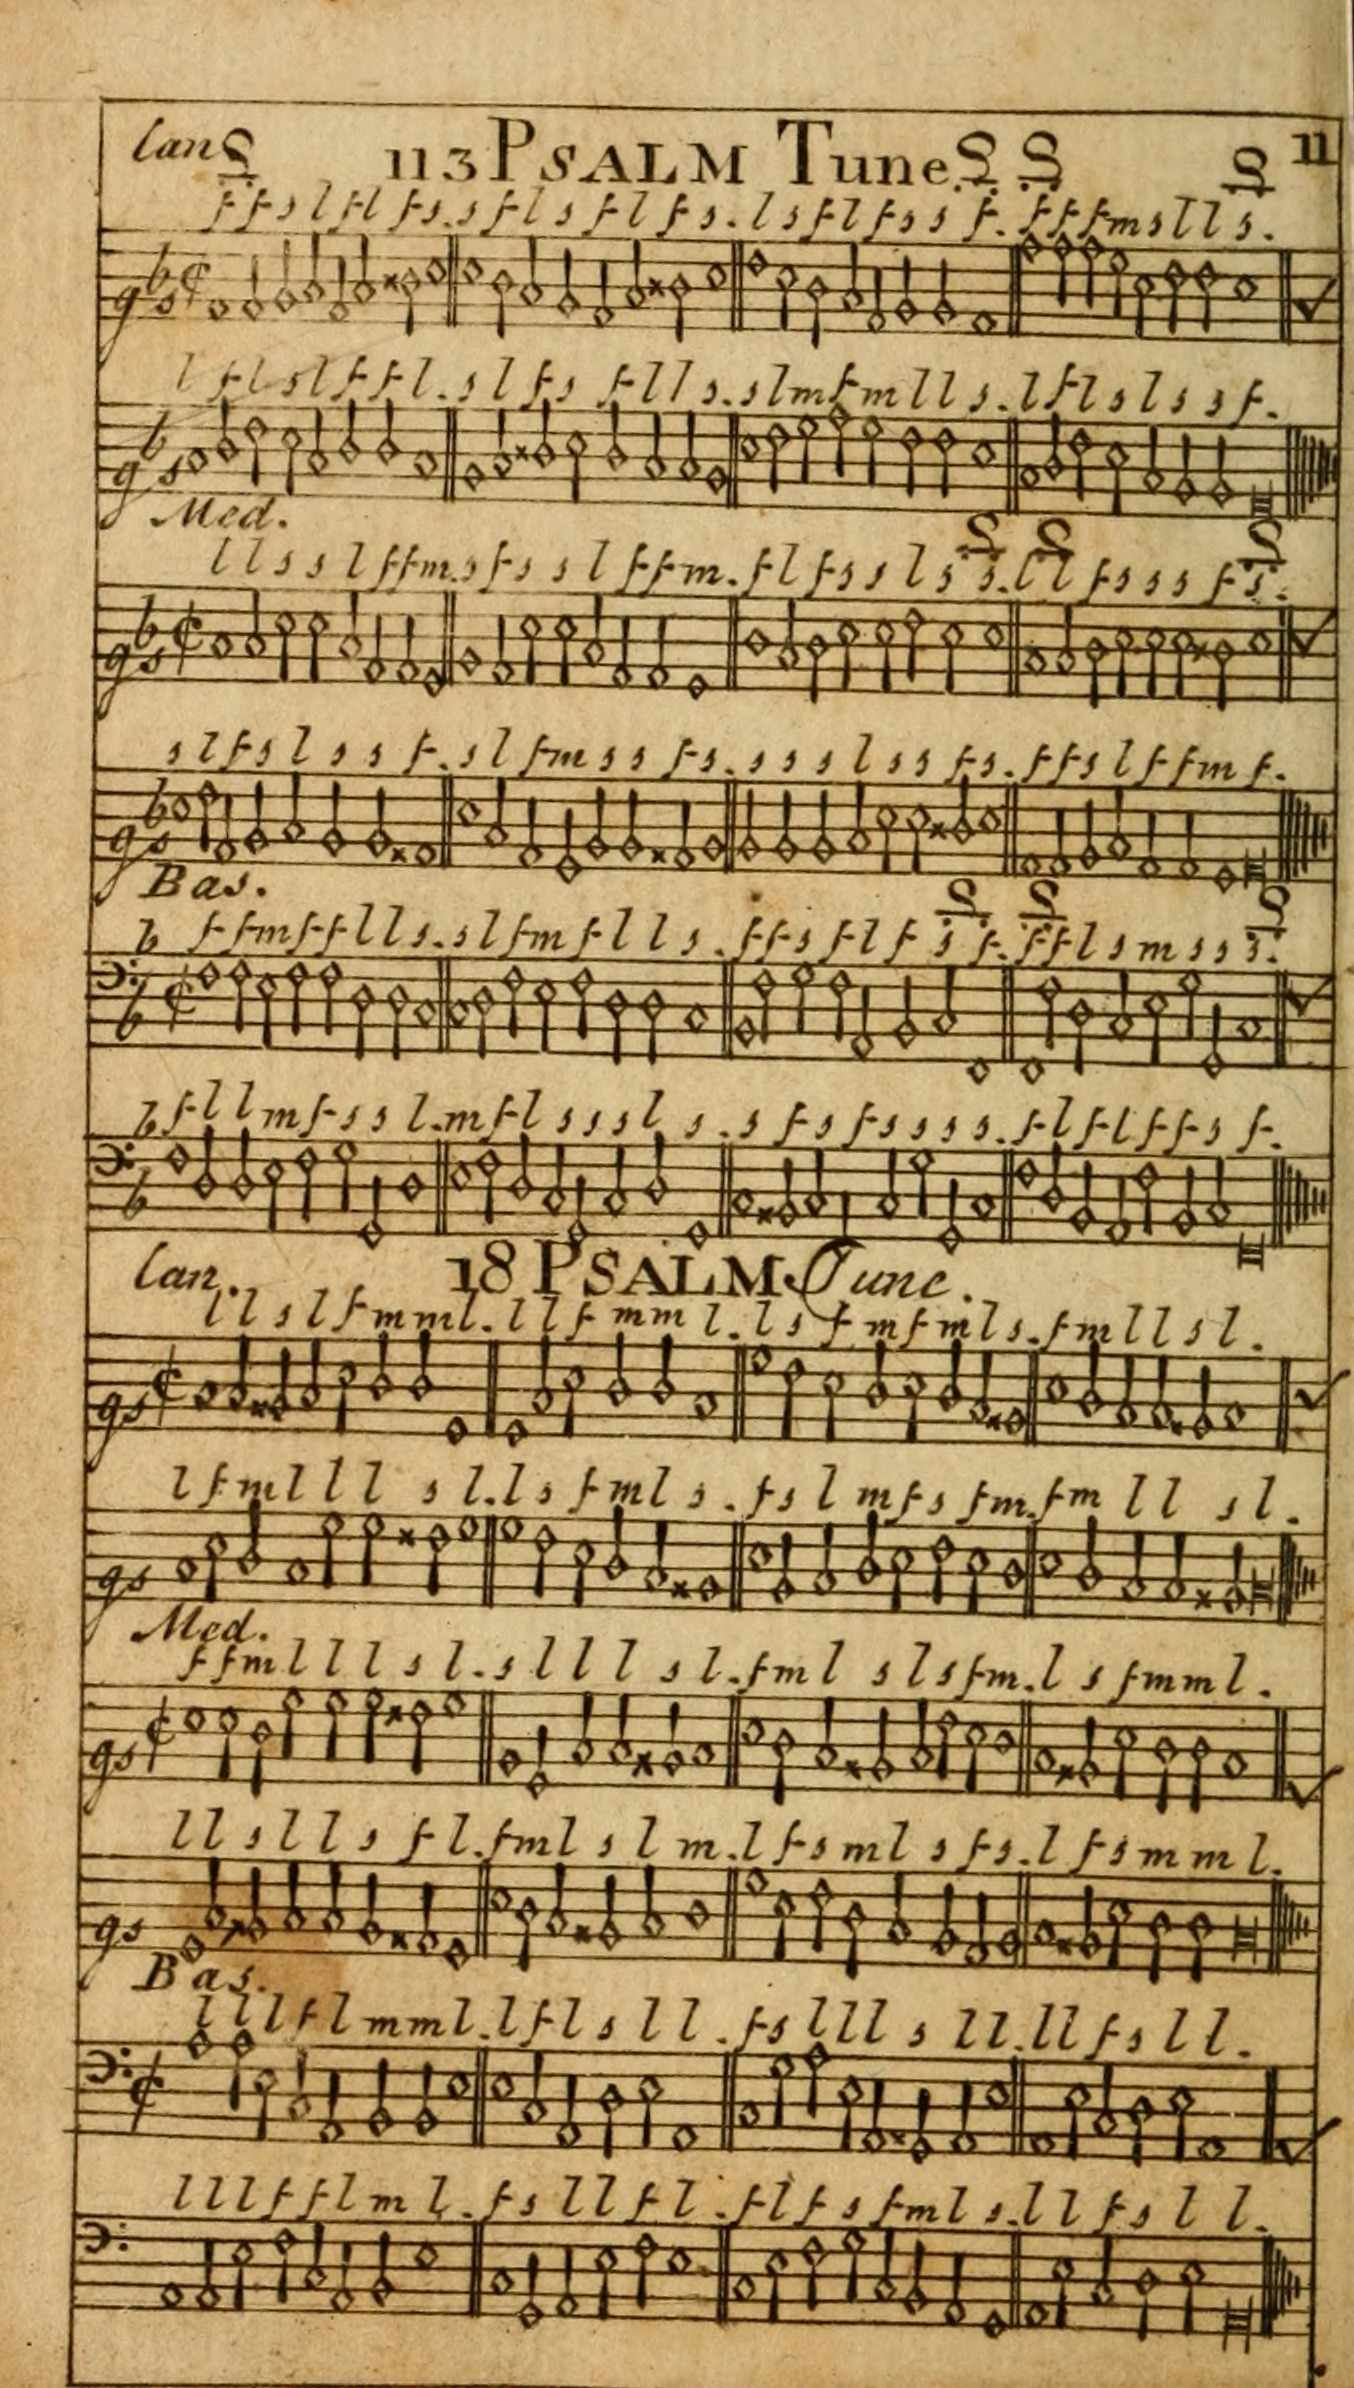 Can 113 PSALM Tune. 11
f f s l f l f s. s f l s f l f s. l s f l f s s f. f f f m s l l s.
b gs
l f l s l f f l. s l f s f l l s. s l m f m l l s. l f l s l s s f.
b gs
Med.
l l s s l f f m. s f s s l f f m. f l f s s l s s. l l f s s s f s.
b gs
s l f s l s s f. s l f m s s f s. s s s l s s f s. f f s l f f m f.
b gs
Bas.
f f m f f l l s. s l f m f l l s. f f s f l f s f. f f l s m s s s.
b b
f l l m f s s l. m f l s s s l s. s f s f s s s s. f l f l f f s f.
b b
Can. 18 PSALM Tune.
l l s l f m m l. l l f m m l. l s f m f m l s. f m l l s l.
gs
l f m l l l s l. l s f m l s. f s l m f s f m. f m l l s l.
gs
Med.
f f m l l l s l. s l l l s l. f m l s l s f m. l s f m m l.
gs
l l s l l s f l. f m l s l m. l f s m l s f s. l f s m m l.
gs
Bas.
l l l f l m m l. l f l s l l. f s l l l s l l. l l f s l l.
l l l f f l m l. f s l l f l. f l f s f m l s. l l f s l l.